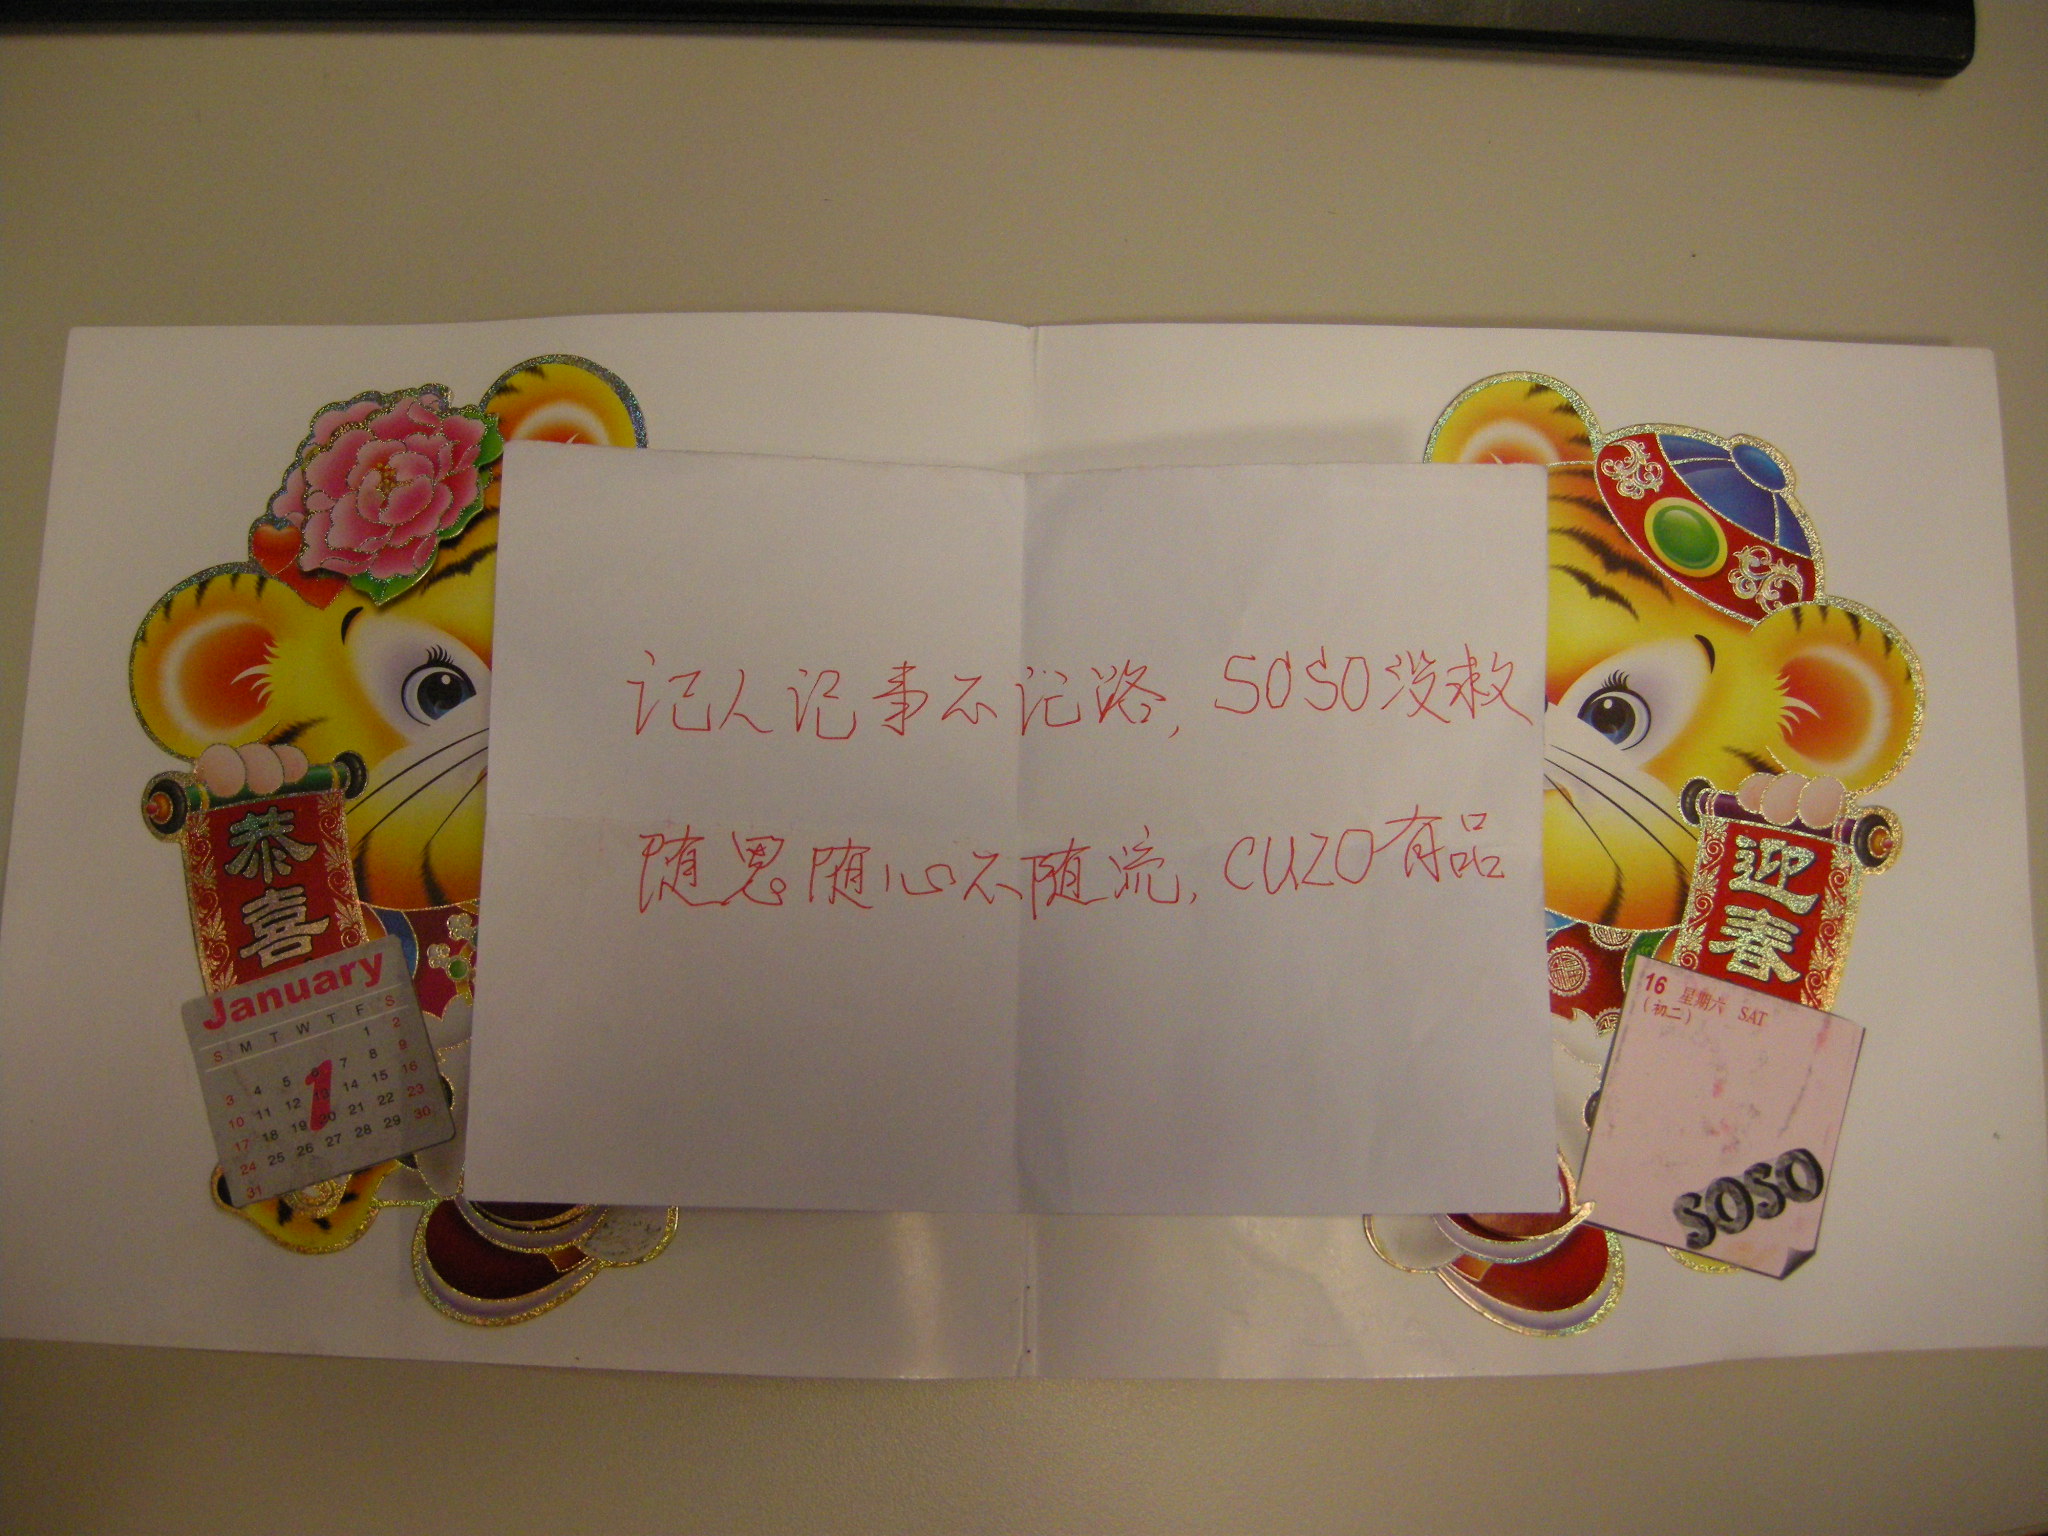 记人记事不记路,SOSO没救
随恩随心不随流,CUZO有品
恭喜
January
S M T W T F S
1 2
3 4 5 6 7 8 9
10 11 12 13 14 15 16
17 18 19 20 21 22 23
24 25 26 27 28 29 30
31
1
迎春
16 星期六 SAT
(初二)
SOSO